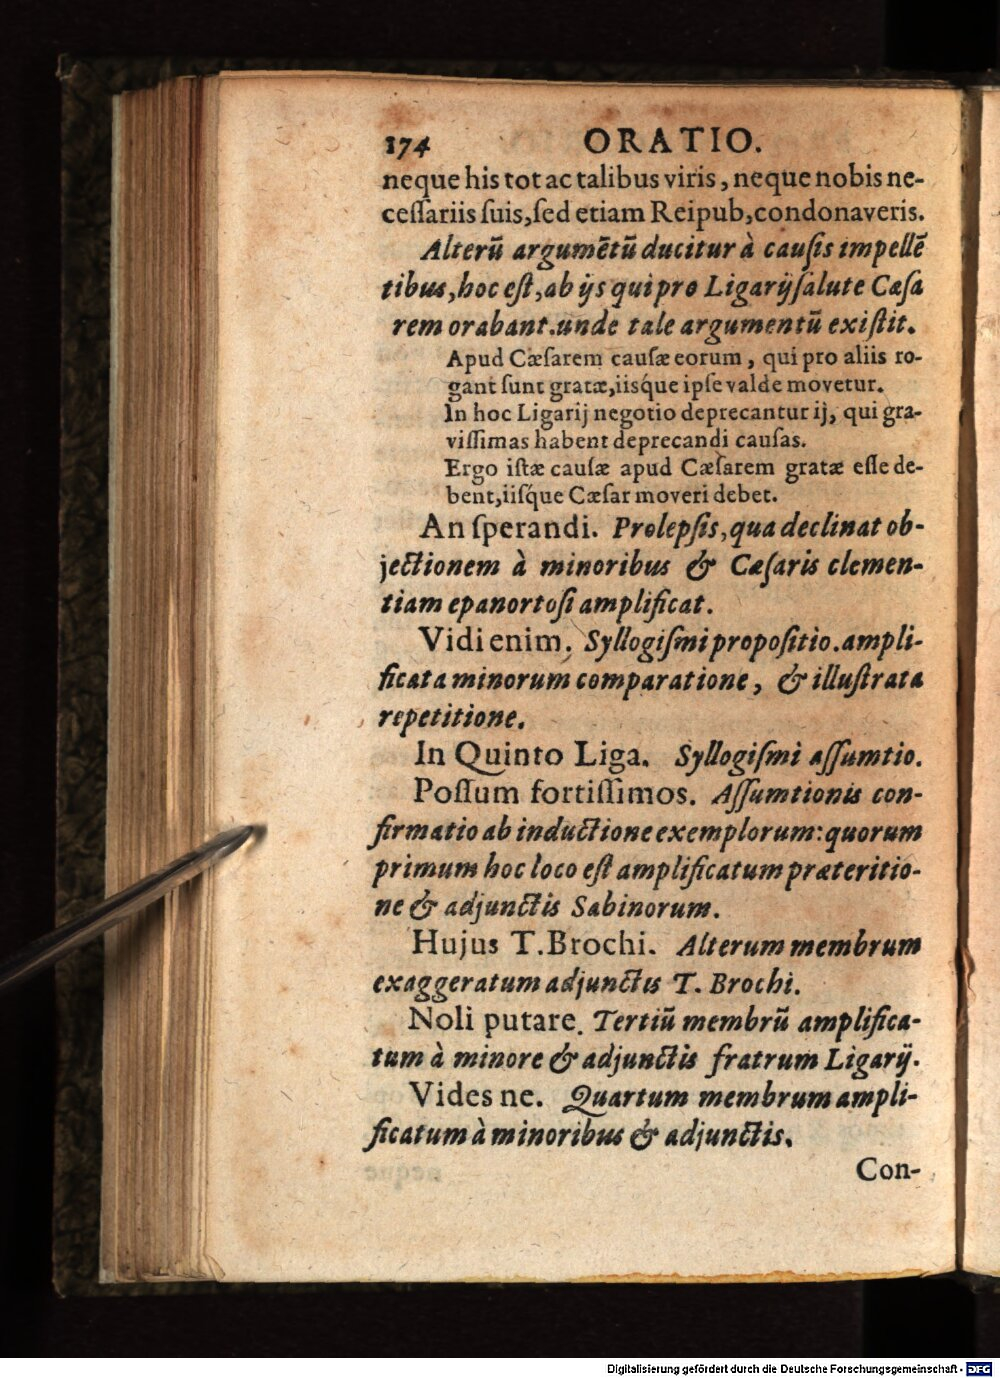 174 ORATIO.
neque his tot ac talibus viris, neque nobis ne-
ceſſariis ſuis, ſed etiam Reipub, condonaveris.
Alterũ argumẽtũ ducitur à cauſis impellẽ
tibus, hoc eſt, ab ijs qui pro Ligarij ſalute Cæſa
rem orabant. unde tale argumentũ exiſtit.
Apud Cæſarem cauſæ eorum, qui pro aliis ro-
gant ſunt gratæ, iisq́ue ipſe valde movetur.
In hoc Ligarij negotio deprecantur ij, qui gra-
viſſimas habent deprecandi cauſas.
Ergo iſtæ cauſæ apud Cæſarem gratæ eſſe de-
bent, iiſq́ue Cæſar moveri debet.
An ſperandi. Prolepſis, qua declinat ob-
jectionem à minoribus & Cæſaris clemen-
tiam epanortoſi amplificat.
Vidi enim. Syllogiſmi propoſitio. ampli-
ficata minorum comparatione, & illuſtrata
repetitione.
In Quinto Liga. Syllogiſmi aſſumtio.
Poſſum fortiſſimos. Aſſumtionis con-
firmatio ab inductione exemplorum: quorum
primum hoc loco eſt amplificatum præteritio-
ne & adjunctis Sabinorum.
Hujus T. Brochi. Alterum membrum
exaggeratum adjunctis T. Brochi.
Noli putare. Tertiũ membrũ amplifica-
tum à minore & adjunctis fratrum Ligarij.
Vides ne. Quartum membrum ampli-
ficatum à minoribus & adjunctis.
Con-
Digitalisierung gefördert durch die Deutsche Forschungsgemeinschaft - DFG